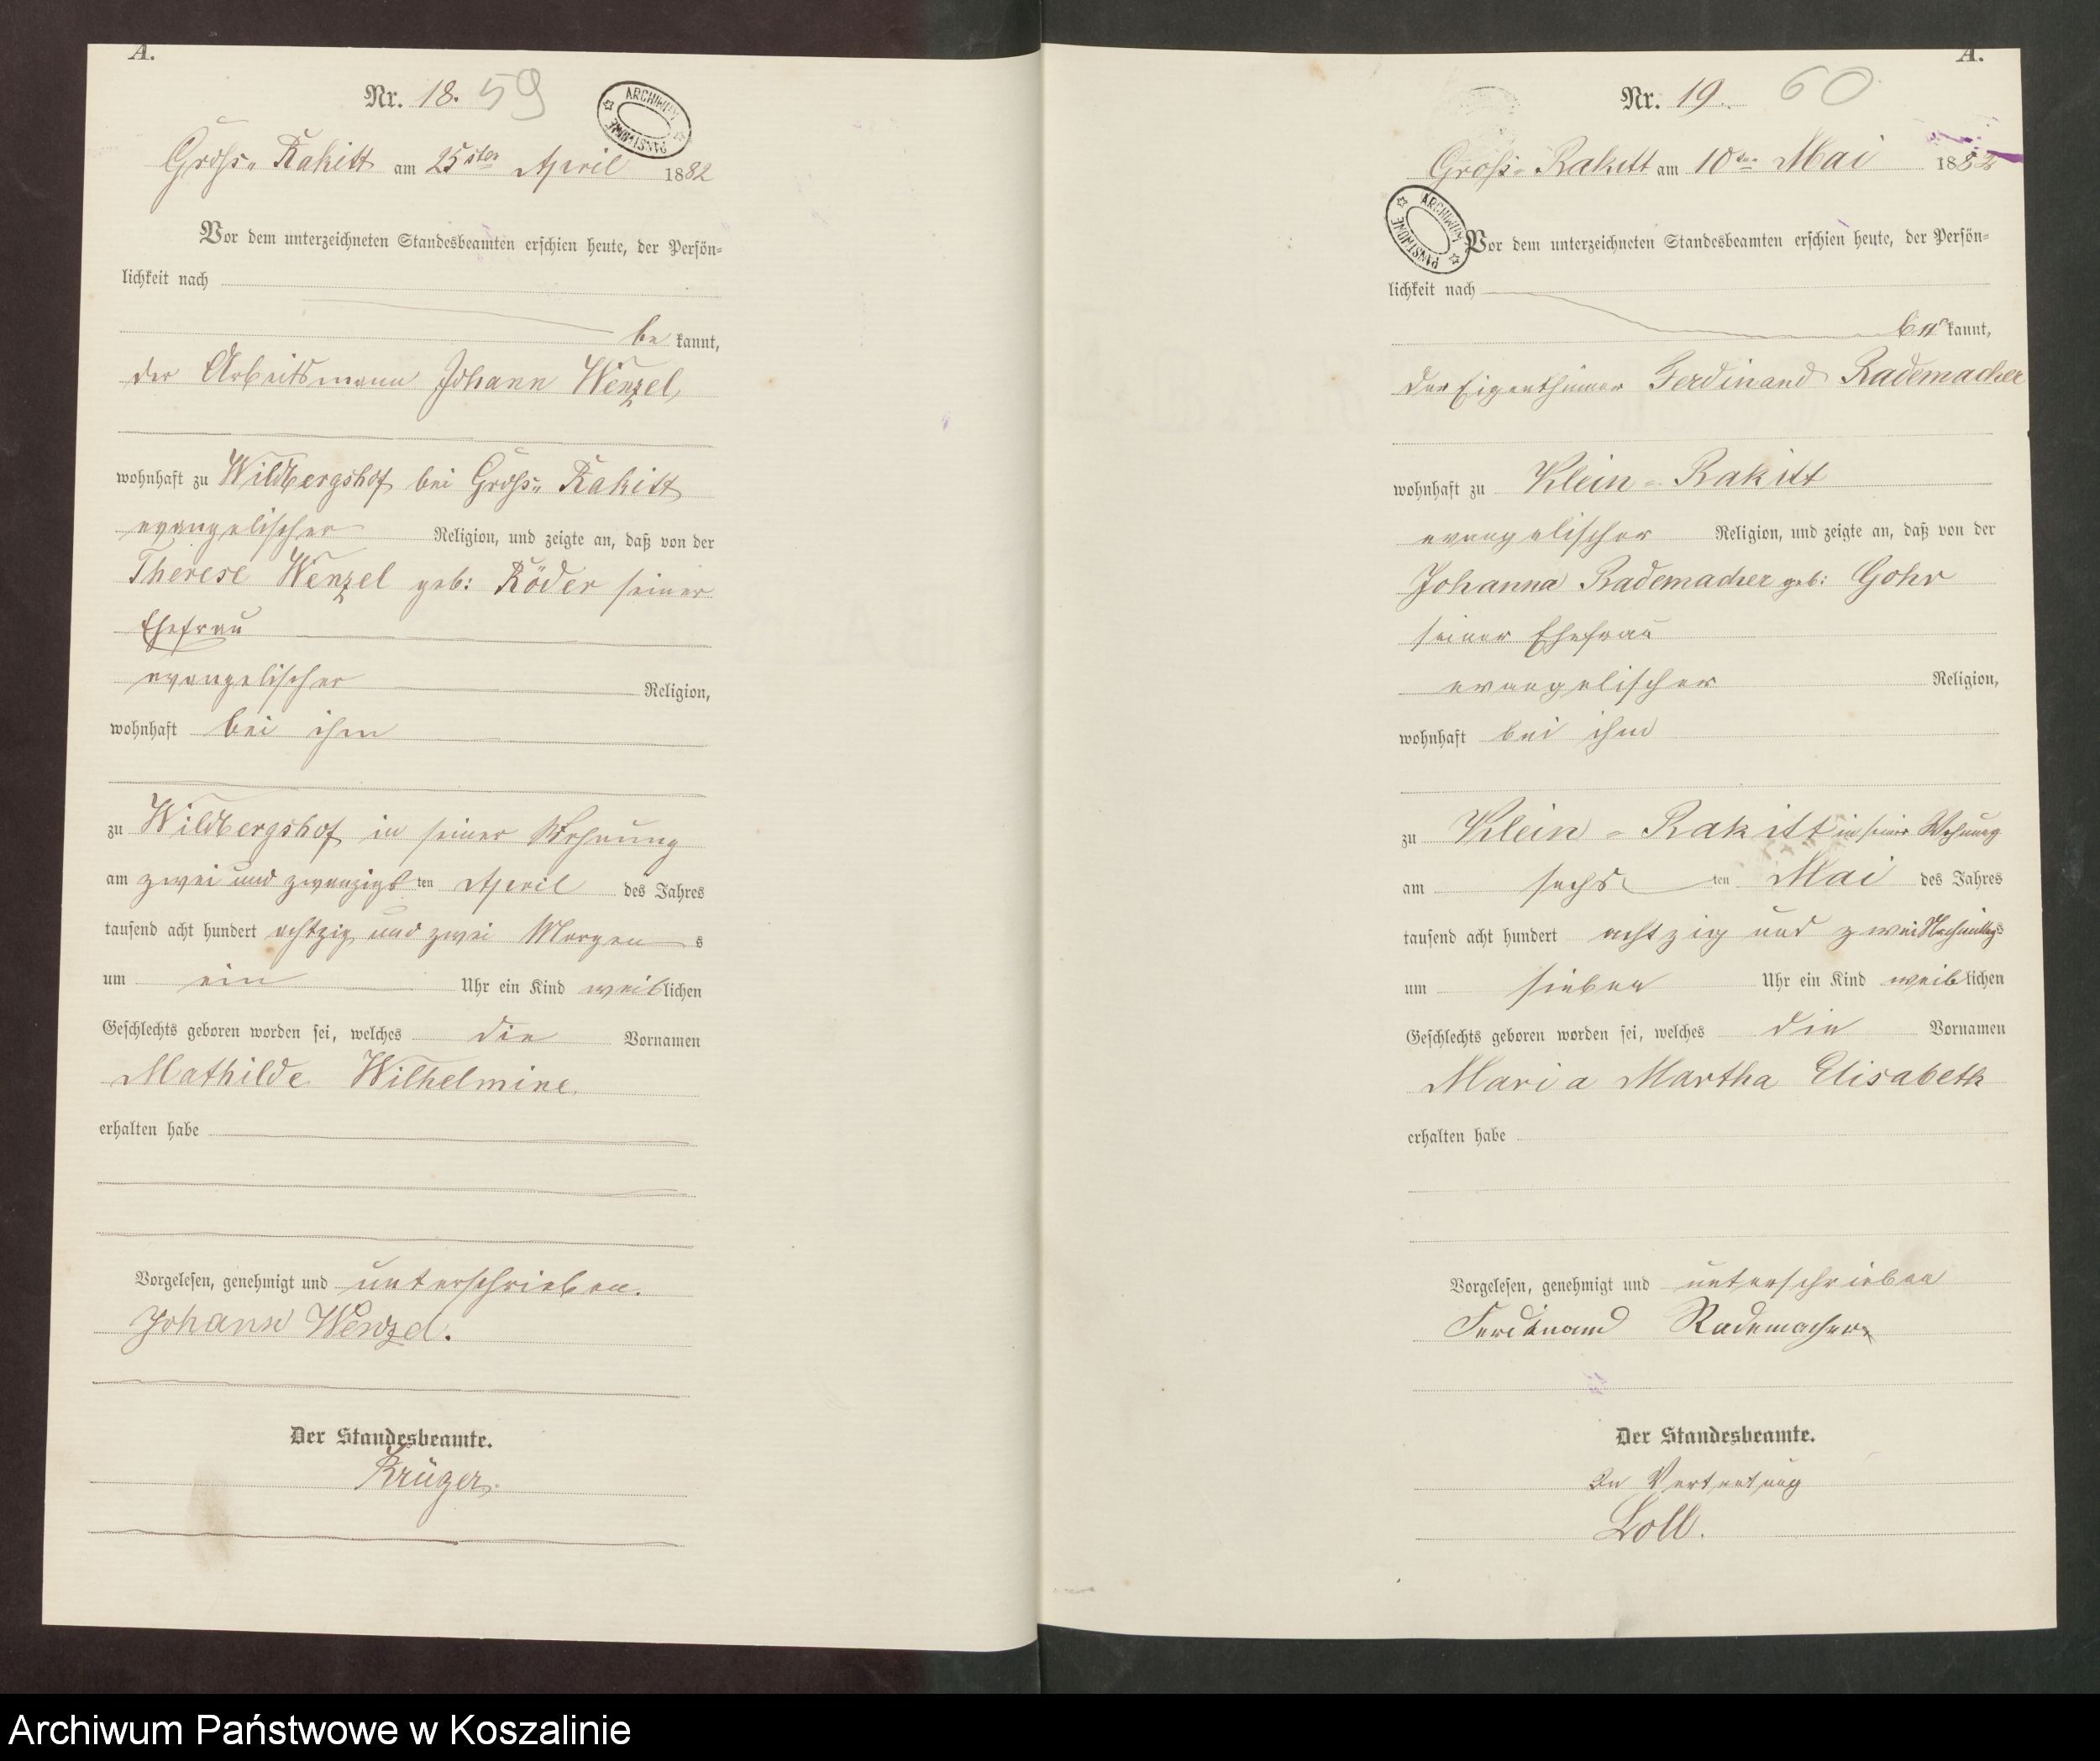 A.
Nr. 18. 59
ARCHIWUM PAŃSTWOWE
Gross-Rakitt am 25sten April 1882
Vor dem unterzeichneten Standesbeamten erschien heute, der Persön-
lichkeit nach
be kannt,
der Arbeitsmann Johann Wenzel,
wohnhaft zu Wildbergshof bei Gross-Rakitt
evangelischer Religion, und zeigte an, daß von der
Therese Wenzel geb: Röder seiner
Ehefrau
evangelischer Religion,
wohnhaft bei ihm
zu Wildbergshof in seiner Wohnung
am zwei und zwanzigsten April des Jahres
tausend acht hundert achtzig und zwei Morgens
um ein Uhr ein Kind weiblichen
Geschlechts geboren worden sei, welches die Vornamen
Mathilde Wilhelmine
erhalten habe
Vorgelesen, genehmigt und unterschrieben.
Johann Wenzel.
Der Standesbeamte.
Krüger.
A.
Nr. 19. 60
Groß-Rakitt am 10ten Mai 1882
ARCHIWUM PAŃSTWOWE
Vor dem unterzeichneten Standesbeamten erschien heute, der Persön-
lichkeit nach
be kannt,
der Eigenthümer Ferdinand Rademacher
wohnhaft zu Klein-Rakitt
evangelischer Religion, und zeigte an, daß von der
Johanna Rademacher geb: Gohr
seiner Ehefrau
evangelischer Religion,
wohnhaft bei ihm
zu Klein-Rakitt in seiner Wohnung
am sechsten Mai des Jahres
tausend acht hundert achtzig und zwei Nachmittags
um sieben Uhr ein Kind weiblichen
Geschlechts geboren worden sei, welches die Vornamen
Maria Martha Elisabeth
erhalten habe
Vorgelesen, genehmigt und unterschrieben
Ferdinand Rademacher
Der Standesbeamte.
In Vertretung
Loll.
Archiwum Państwowe w Koszalinie